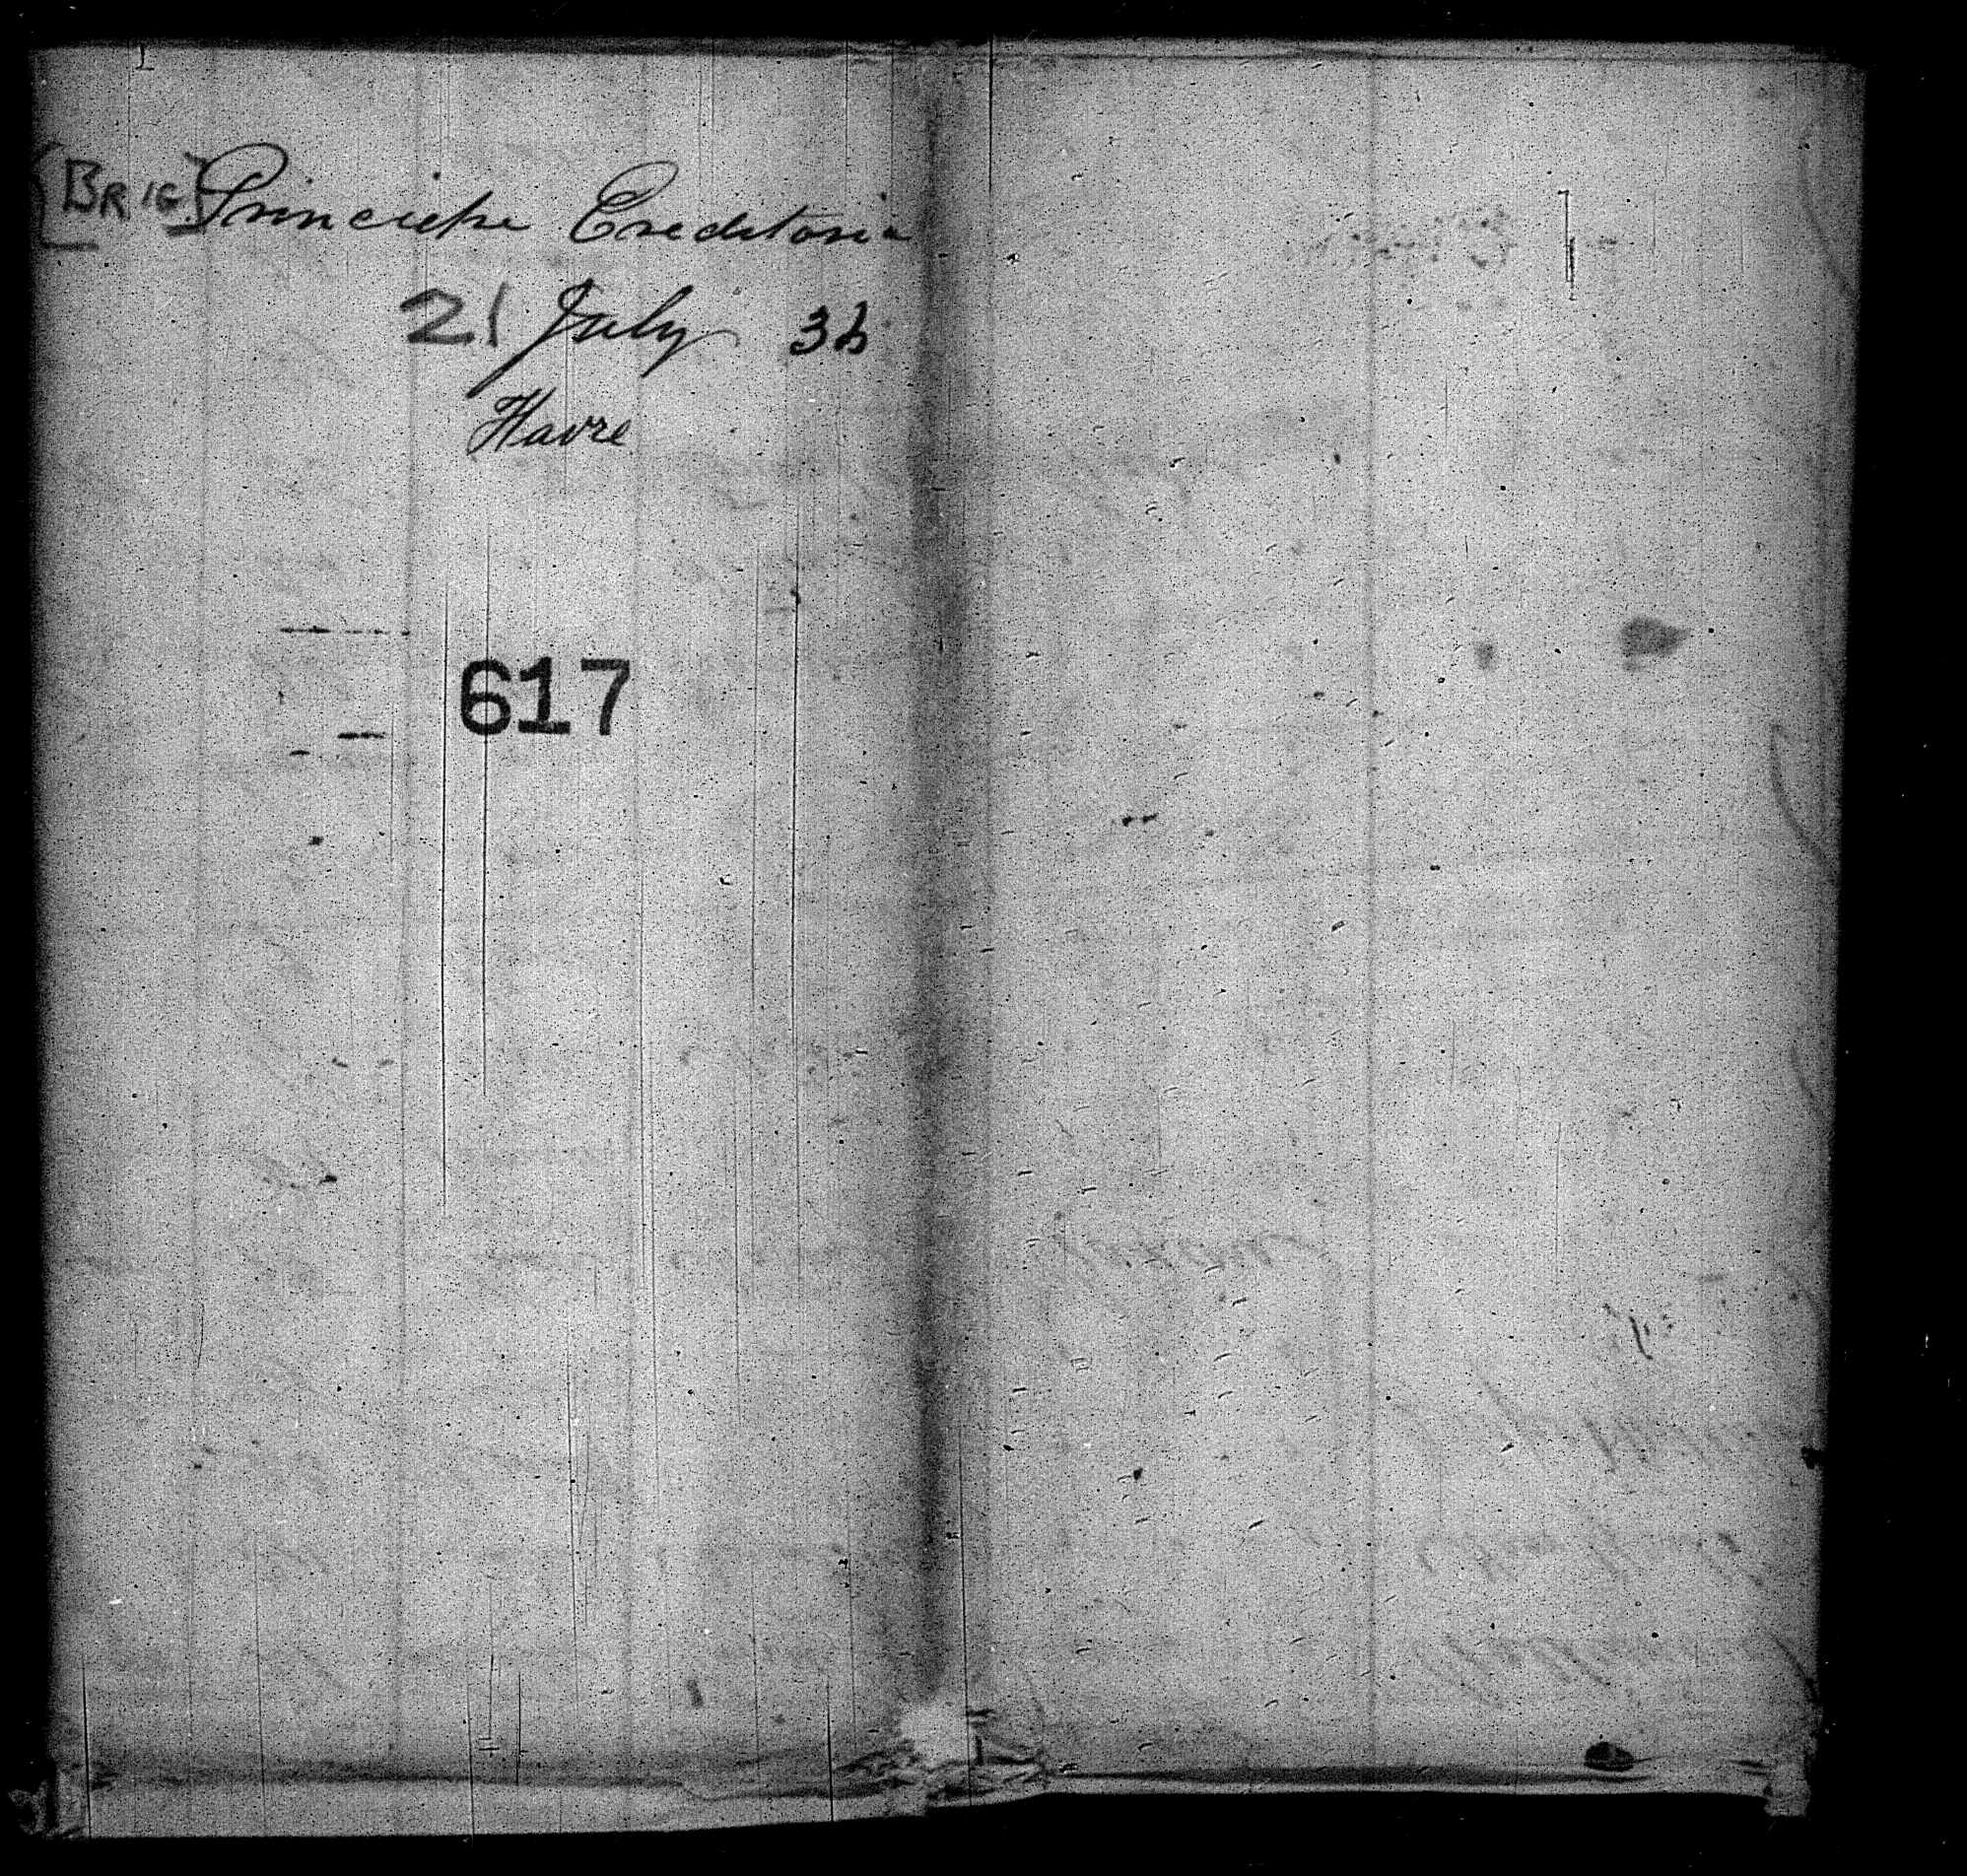 [BRIG] Principe Ereditoria
21 July 36
Havre
617